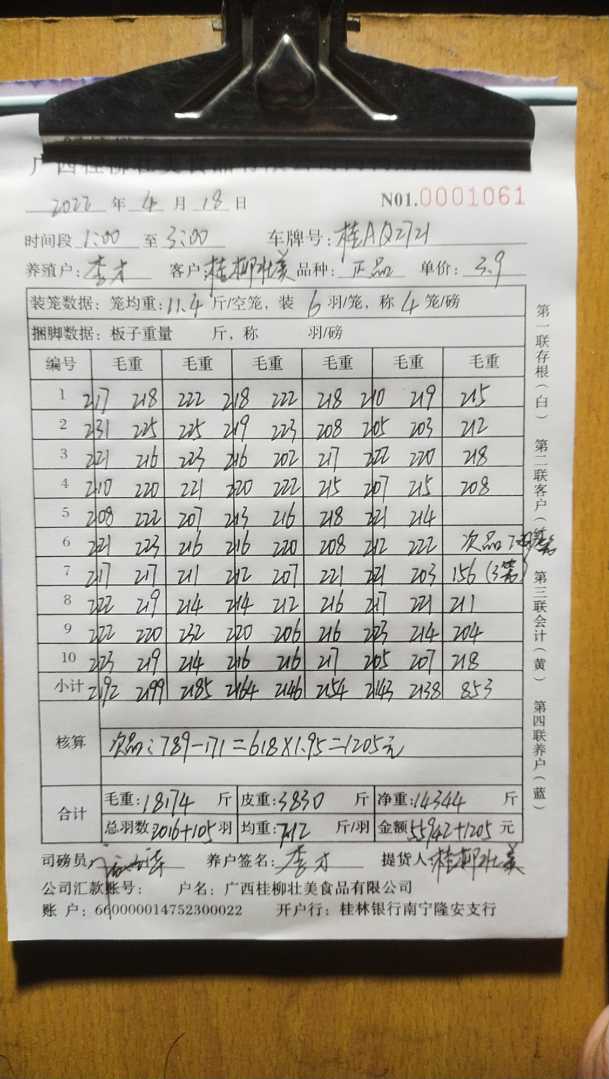 2022 年 4 月 18 日 N01.0001061
时间段 1:00 至 3:00 车牌号: 桂AQ2721
养殖户: 李才 客户 桂柳壮美 品种: 正品 单价: 3.9
装笼数据: 笼均重: 11.4 斤/空笼, 装 6 羽/笼, 称 4 笼/磅
捆脚数据: 板子重量 斤, 称 羽/磅
编号 毛重 毛重 毛重 毛重 毛重 毛重
1 217 218 222 218 222 218 210 219 215
2 231 225 225 219 223 208 205 203 212
3 221 216 223 216 202 217 222 220 218
4 210 220 221 220 222 215 207 215 208
5 208 222 207 213 216 218 221 214
6 221 223 216 216 220 208 212 222 次品
7 217 217 211 212 207 221 221 203 156 (3笼)
8 222 219 214 214 212 216 217 221 211
9 222 220 232 220 206 216 223 214 204
10 223 219 214 216 216 217 205 207 218
小计 2192 2199 2185 2164 2146 2154 2143 2138 853
核算 次品: 789-171=618×1.95=1205元
合计 毛重: 18174 斤 皮重: 3830 斤 净重: 14344 斤
总羽数 2016+105 羽 均重: 7.12 斤/羽 金额 55942+1205 元
司磅员 养户签名: 李才 提货人 桂柳壮美
公司汇款账号: 户名: 广西桂柳壮美食品有限公司
账 户: 660000014752300022 开户行: 桂林银行南宁隆安支行
第一联存根(白) 第二联客户( 第三联会计(黄) 第四联养户(蓝)